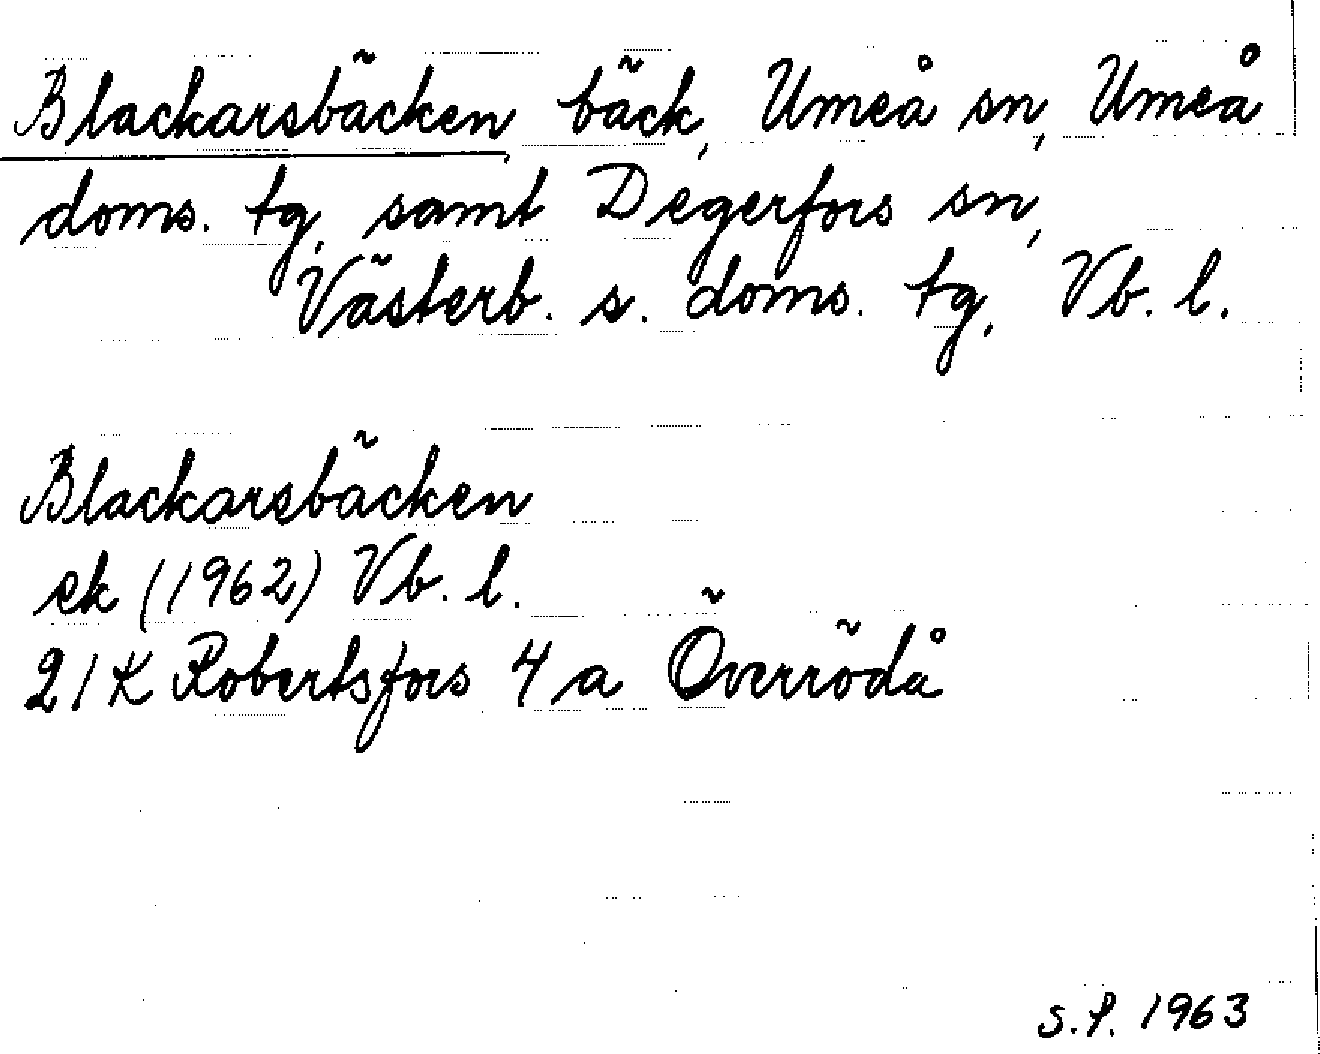 Blackarsbäcken, bäck, Umeå sn, Umeå
doms. tg, samt Degerfors sn,
Västerb. s. doms. tg, Vb. l.
Blackarsbäcken
ek (1962) Vb. l.
21K Robertsfors 4a Överrödå
S.P. 1963